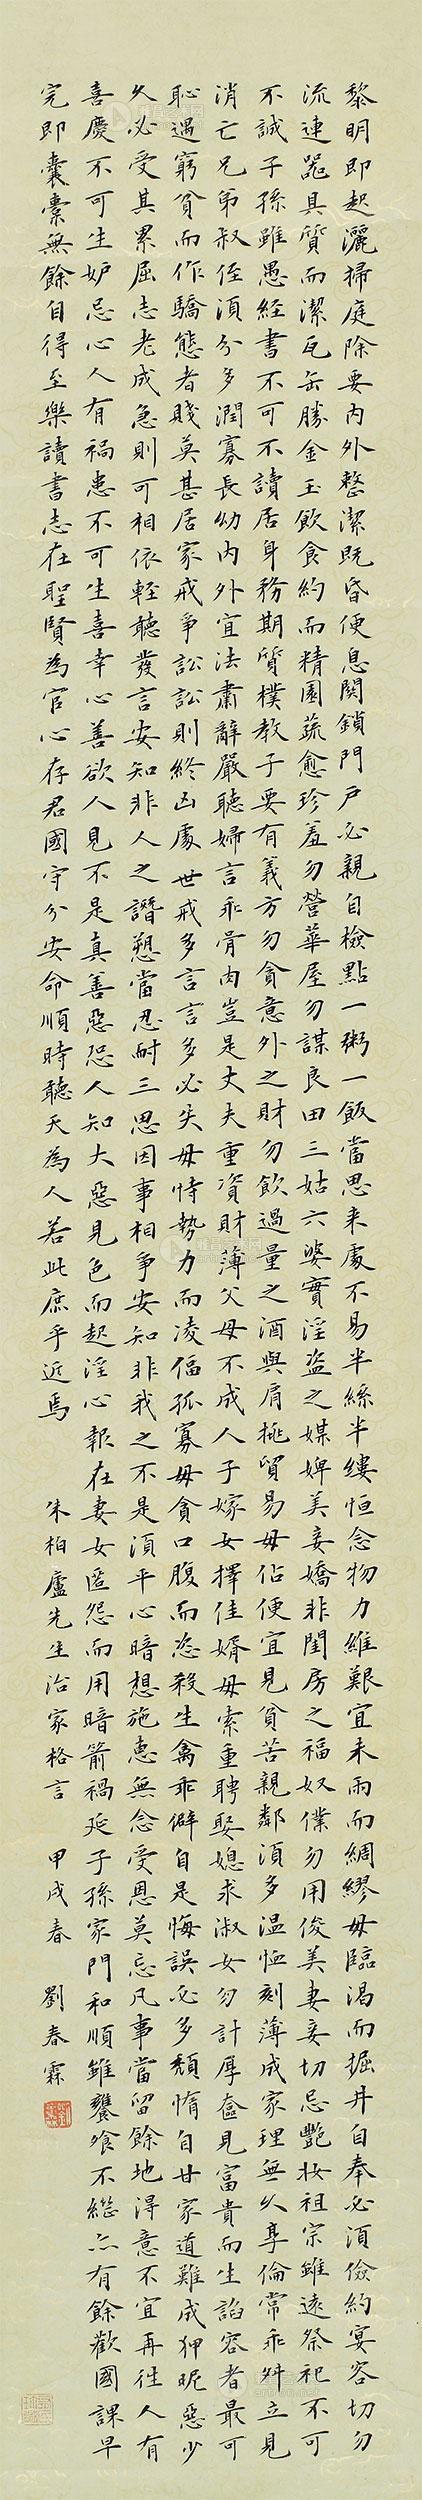 黎明即起灑掃庭除要內外整潔既昏便息関鎖門戶必親自檢點一粥一飯當思来處不易半絲半縷恒念物力維艱宜未雨而綢繆毋臨渴而掘井自奉必須儉約宴客切勿
流連器具質而潔瓦缶勝金玉飲食約而精園蔬愈珍羞勿營華屋勿謀良田三姑六婆實淫盜之媒婢美妾嬌非閨房之福奴僕勿用俊美妻妾切忌艷妝祖宗雖遠祭祀不可
不誠子孫雖愚經書不可不讀居身務期質樸教子要有義方勿貪意外之財勿飲過量之酒與肩挑貿易毋佔便宜見貧苦親鄰須多温恤刻薄成家理無久享倫常乖舛立見
消亡兄弟叔侄須分多潤寡長幼內外宜法肅辭嚴聽婦言乖骨肉豈是丈夫重資財薄父母不成人子嫁女擇佳婿毋索重聘娶媳求淑女勿計厚奩見富貴而生諂容者最可
恥遇窮貧而作驕態者賤莫甚居家戒爭訟訟則終凶處世戒多言言多必失毋恃勢力而凌偪孤寡毋貪口腹而恣殺生禽乖僻自是悔誤必多頹惰自甘家道難成狎昵惡少
久必受其累屈志老成急則可相依輕聽發言安知非人之譖愬當忍耐三思因事相爭安知非我之不是須平心暗想施惠無念受恩莫忘凡事當留餘地得意不宜再往人有
喜慶不可生妒忌心人有禍患不可生喜幸心善欲人見不是真善惡恐人知大惡見色而起淫心報在妻女匿怨而用暗箭禍延子孫家門和順雖饔飧不繼亦有餘歡國課早
完即囊橐無餘自得至樂讀書志在聖賢為官心存君國守分安命順時聽天為人若此庶乎近焉 朱柏廬先生治家格言 甲戌春 劉春霖